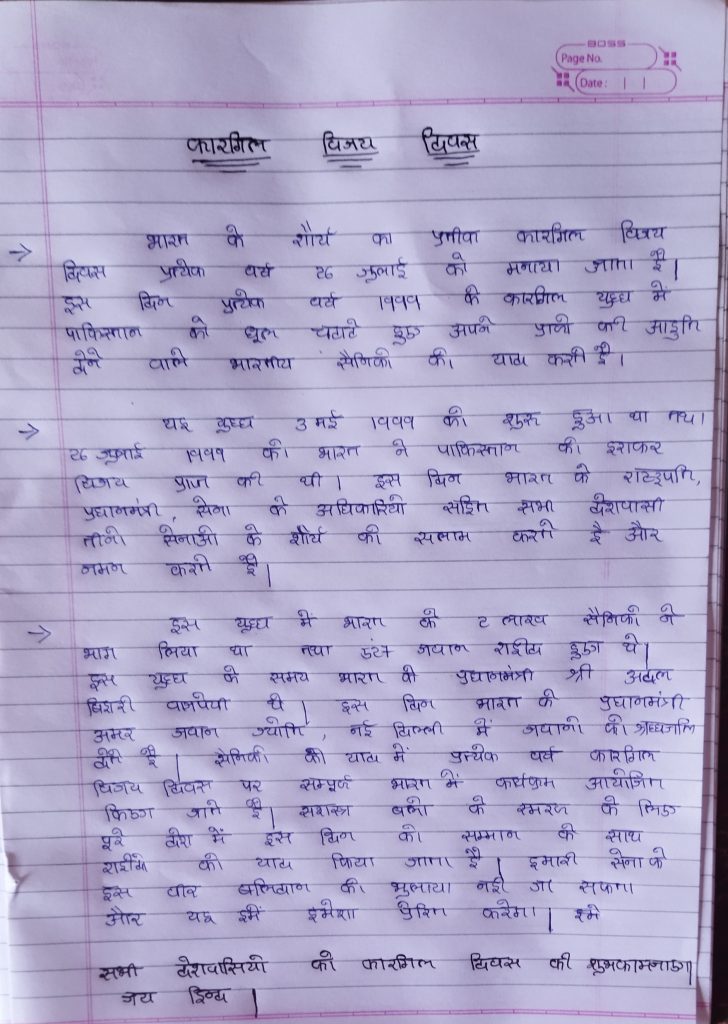 BOSS
Page No.
Date :
कारगिल विजय दिवस
भारत के शौर्य का प्रतीक कारगिल विजय
दिवस प्रत्येक वर्ष २६ जुलाई को मनाया जाता है।
इस दिन प्रत्येक वर्ष १९९९ के कारगिल युध्ध में
पाकिस्तान को धूल चटाते हुए अपने प्राणो की आहुति
देने वाले भारतीय सैनिको को याद करते है।
यह युध्ध ३ मई १९९९ को शुरू हुआ था तथा
२६ जुलाई १९९९ को भारत ने पाकिस्तान को हराकर
विजय प्राप्त की थी। इस दिन भारत के राष्ट्रपति,
प्रधानमंत्री, सेना के अधिकारियो सहित सभी देशवासी
तीनो सेनाओ के शौर्य को सलाम करते है और
नमन करते है।
इस युध्ध में भारत के २ लाख सैनिको ने
भाग लिया था तथा ५२७ जवान शहीद हुए थे।
इस युध्ध के समय भारत के प्रधानमंत्री श्री अटल
बिहारी वाजपेयी थे। इस दिन भारत के प्रधानमंत्री
अमर जवान ज्योति, नई दिल्ली में जवानो को श्रध्धांजलि
देते है। सैनिको की याद में प्रत्येक वर्ष कारगिल
विजय दिवस पर सम्पूर्ण भारत में कार्यक्रम आयोजित
किए जाते है। सशस्त्र बलो के स्मरण के लिए
पूरे देश में इस दिन को सम्मान के साथ
शहीदो को याद किया जाता है। हमारी सेना के
इस वीर बलिदान को भुलाया नही जा सकता
और यह हमें हमेशा प्रेरित करेगा।
सभी देशवासियो को कारगिल दिवस की शुभकामनाए।
जय हिन्द।